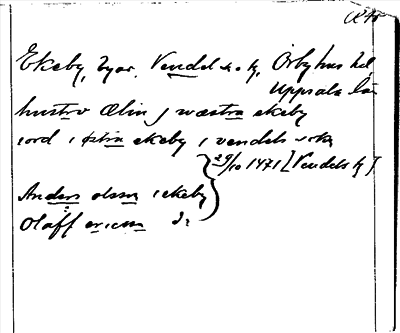 Ekeby, byar, Vendels k, Örbyhus hd
Uppsala län
hustrv Elin j wæstra ekeby
iord i østra ekeby i vendels sokn
29/10 1471 [Vendels k]
Anders olsson i ekeby
Olaff ericsson